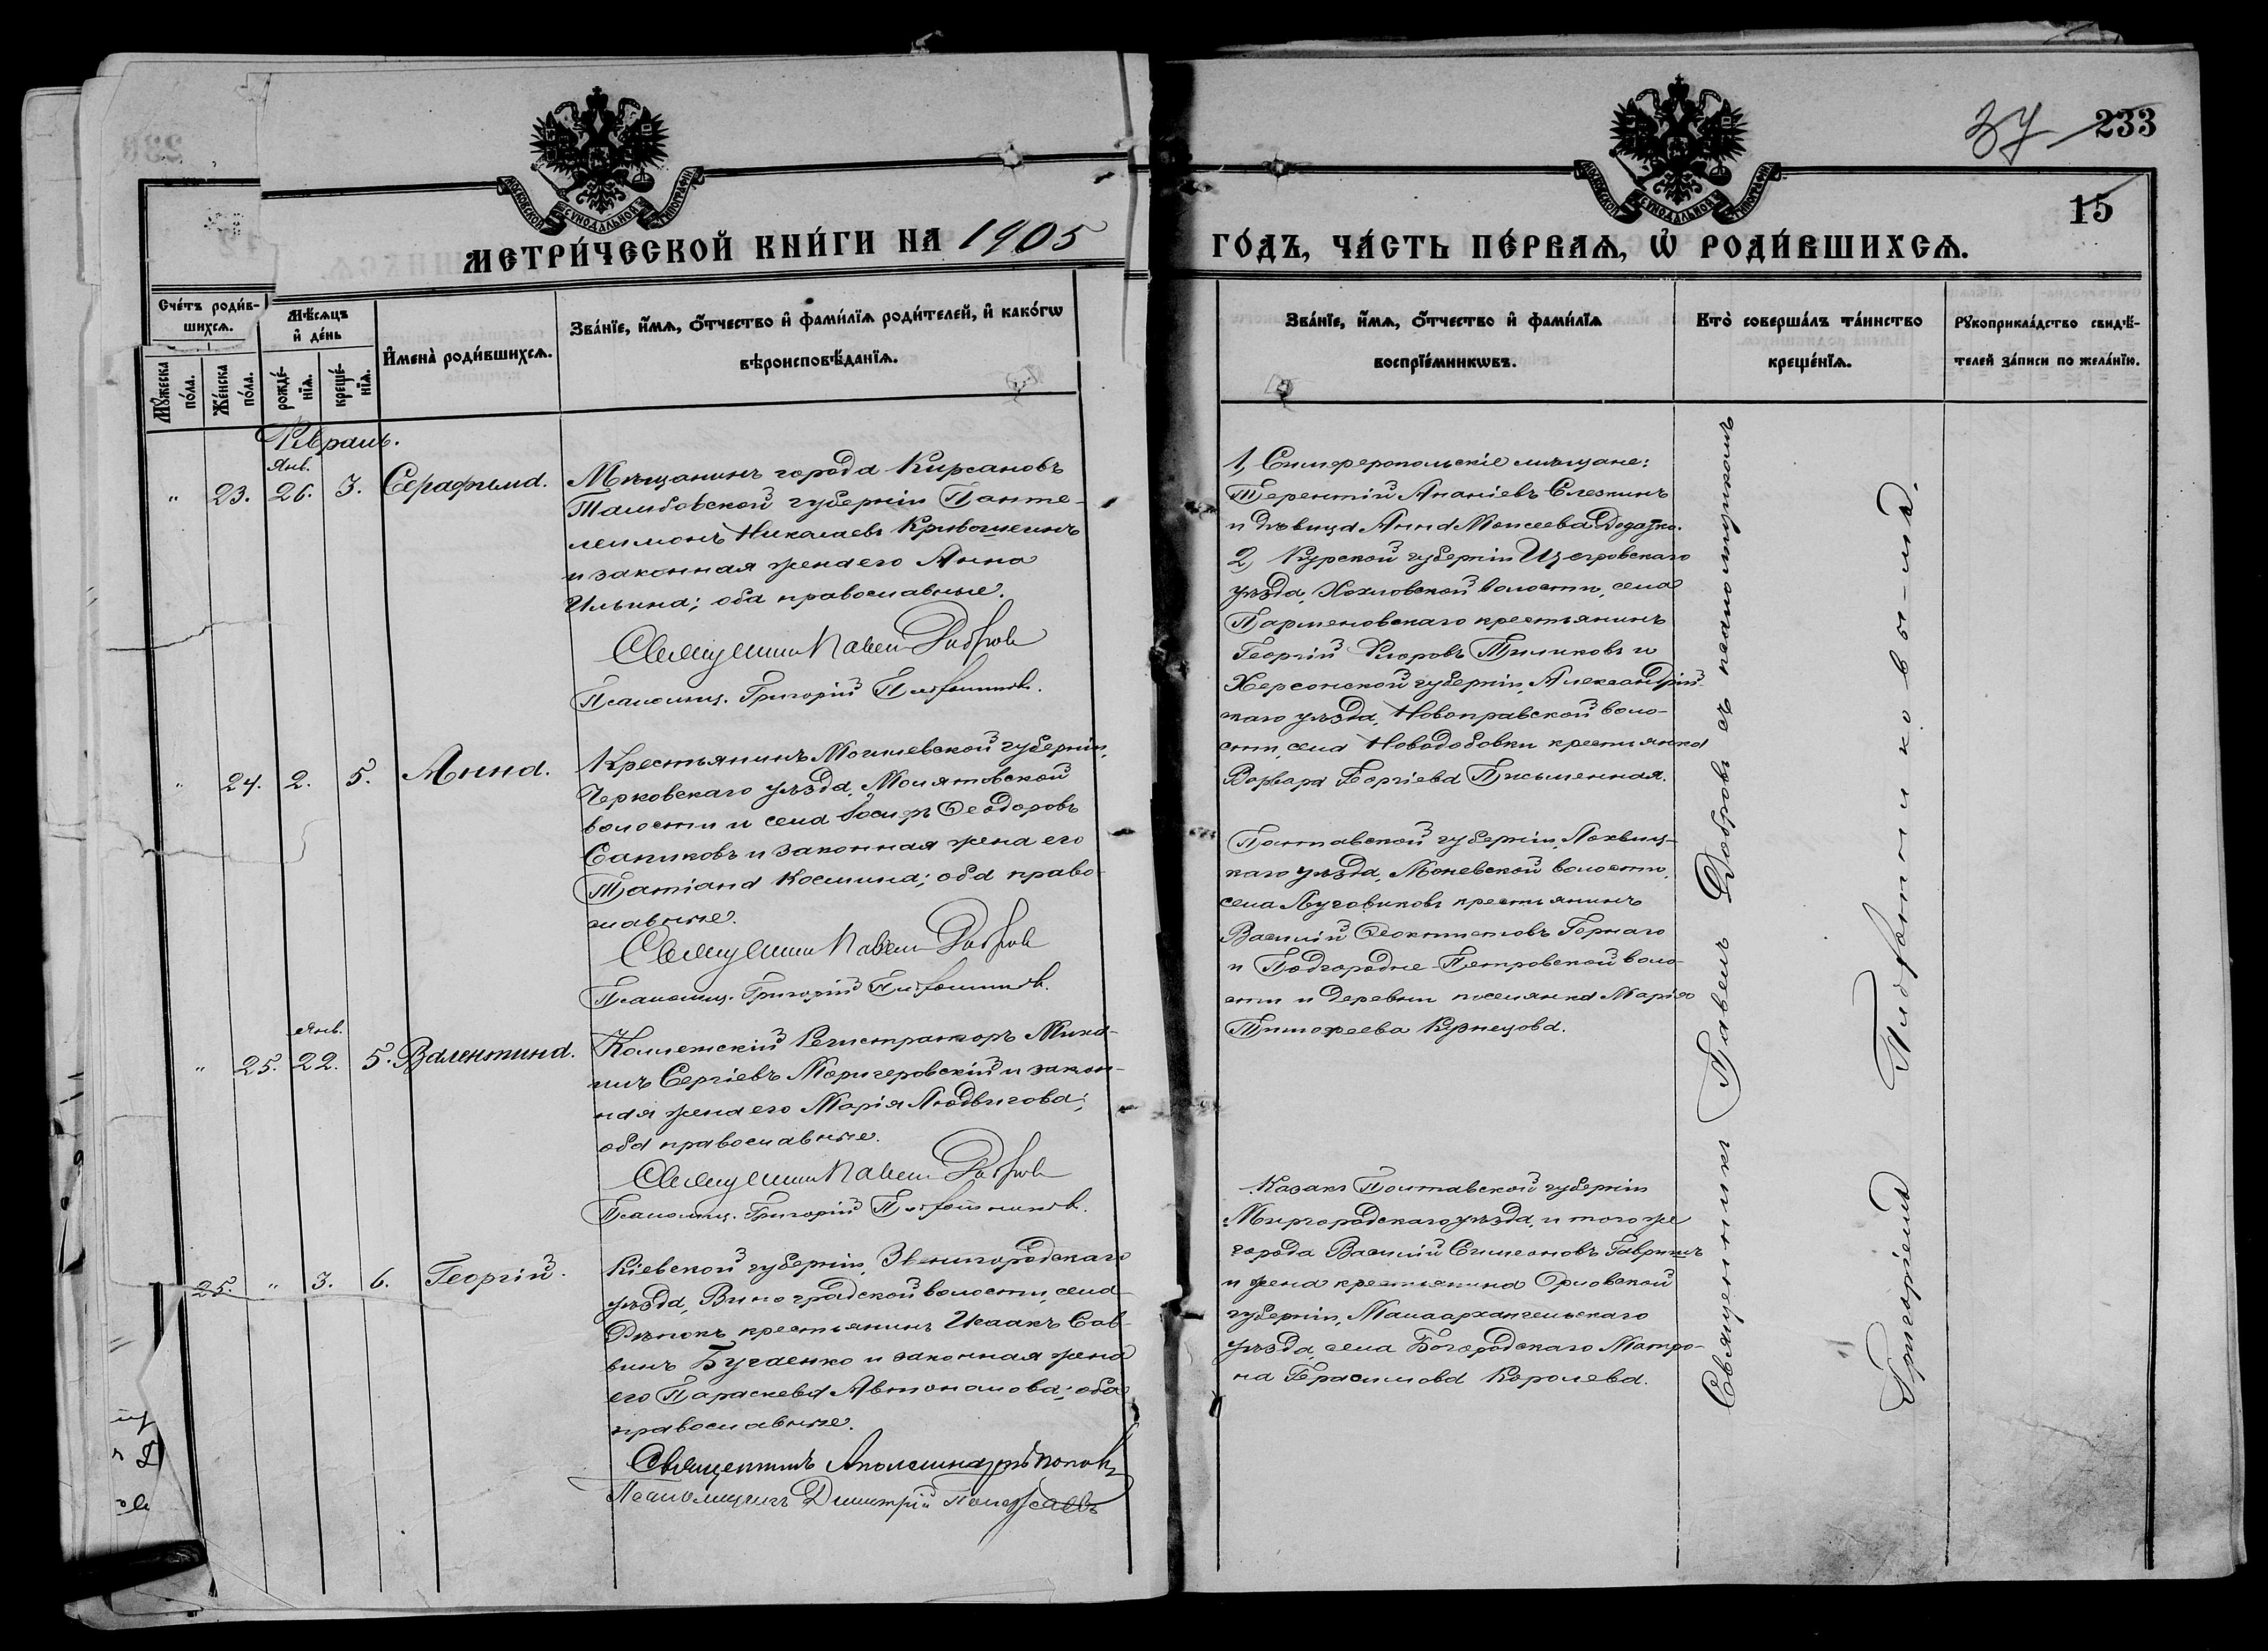 37 233
15
МОСКОВСКОЙ СѴНОДАЛЬНОЙ ТИПОГРАФІИ
МОСКОВСКОЙ СѴНОДАЛЬНОЙ ТИПОГРАФІИ
МЕТРИ́ЧЕСКОЙ КНИ́ГИ НА 1905
ГО́ДЪ, ЧА́СТЬ ПЕ́РВАѦ, Ѡ҆ РОДИ́ВШИХСѦ.
Сче́тъ роди́в-
шихсѧ.
Мꙋ́жеска по́ла.
Же́нска по́ла.
Мѣ́сѧцъ
и҆ де́нь
рожде́-нїѧ.
креще́-нїѧ.
И҆мена̀ роди́вшихсѧ.
Зва́нїе, и҆́мѧ, ѻ҆́тчество и҆ фами́лїѧ роди́телей, и҆ како́гѡ
вѣроисповѣ́данїѧ.
Зва́нїе, и҆́мѧ, ѻ҆́тчество и҆ фами́лїѧ
воспрїе́мникѡвъ.
Кто̀ соверша́лъ та́инство
креще́нїѧ.
Рꙋкоприкла́дство свидѣ́-
телей за́писи по жела́нїю.
Февраль.
Янв.
" 23. 26. 3. Серафима.
Мѣщанинъ города Кирсановъ
Тамбовской губерніи Панте-
леимонъ Николаевъ Кривошеинъ
и законная жена его Анна
Ильина; оба православные.
Священникъ Павелъ Добровъ
Псаломщ. Григорій Плотниковъ.
1, Симферопольскіе мѣщане:
Терентій Ананіевъ Слезкинъ
и дѣвица Анна Моисеева
2, Курской губерніи Щигровскаго
уѣзда, Хохловской волости, села
Парменовскаго крестьянинъ
Георгій и
Херсонской губерніи, Александрій-
скаго уѣзда, Новопражской воло-
сти, села крестьянка
Варвара Георгіева Письменная.
" 24. 2. 5. Анна.
Крестьянинъ Могилевской губерніи,
Чериковскаго уѣзда, Молятовской
волости и села Іосифъ Ѳеодоровъ
Сапиковъ и законная жена его
Татіана Космина; оба право-
славные.
Священникъ Павелъ Добровъ
Псаломщ. Григорій Плотниковъ.
Полтавской губерніи, Лохвиц-
каго уѣзда, волости,
села Луговиковъ крестьянинъ
Василій Ѳеоктистовъ
и Подгородне-Петровской воло-
сти и деревни поселянка Марія
Тимоѳеева Кузнецова.
Янв.
" 25. 22. 5. Валентина.
Коллежскій Регистраторъ Миха-
илъ Сергіевъ и закон-
ная жена его Марія Людвигова;
оба православные.
Священникъ Павелъ Добровъ
Псаломщ. Григорій Плотниковъ.
Казакъ Полтавской губерніи
Миргородскаго уѣзда, и того же
города Василій Симеоновъ Гавришъ
и жена крестьянина Орловской
губерніи, Малоархангельскаго
уѣзда, села Богородскаго Матро-
на Герасимова Королева.
25. " 3. 6. Георгій.
Кіевской губерніи, Звенигородскаго
уѣзда, Виноградской волости, села
крестьянинъ Исаакъ Сав-
винъ Бугаенко и законная жена
его Параскева Автономова; оба
православные.
Священникъ Аполлинарій Поповъ
Псаломщикъ Димитрій
Священникъ Павелъ Добровъ съ псаломщикомъ
Григоріемъ Плотниковымъ.